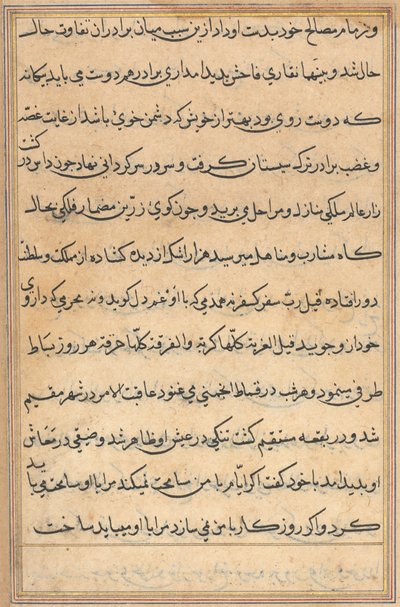 و زمام مصالح خود بدست او داد ازین سبب میان برادران تفاوت حال
حال شد و بینهما نقاری فاحش بدید امد ای برادر هم دوست می باید بیکانه
که دوست روی بود بهتر از خویش که دشمن خوی باشد از غایت غصه
و غضب برادر ترک سیستان کرفت و سر در سرکردانی نهاد جون داس در کشت
زار عالم سلکی منازل و مراحل می برید و جون کوی زرین مضمار فلکی بحال
کاه مشارب و مناهل میرسید هزار اشک از دیده کشاده از ملکت و سلطنت
دور افتاده قیل رب سفر کسفر نه همدمی که با او غم دل کوید و نه محرمی که داروی
خود ازو جوید قیل الغربة کلها کربة والفرقة کلها حرقة هر روز بباط
طرفی میبمود و هر شب در قماط انجمنی می غنود عاقبت الامر در شهر مقیم
شد و در بقعه مستقیم کشت تنکی در عیش او ظاهر شد و ضیقی در معاش
او بدید امد با خود کفت اکر ایام با من مسامحت نمیکند مرا با او مسامحت می باید
کرد و اکر روزکار با من نمی سازد مرا با او میباید ساخت